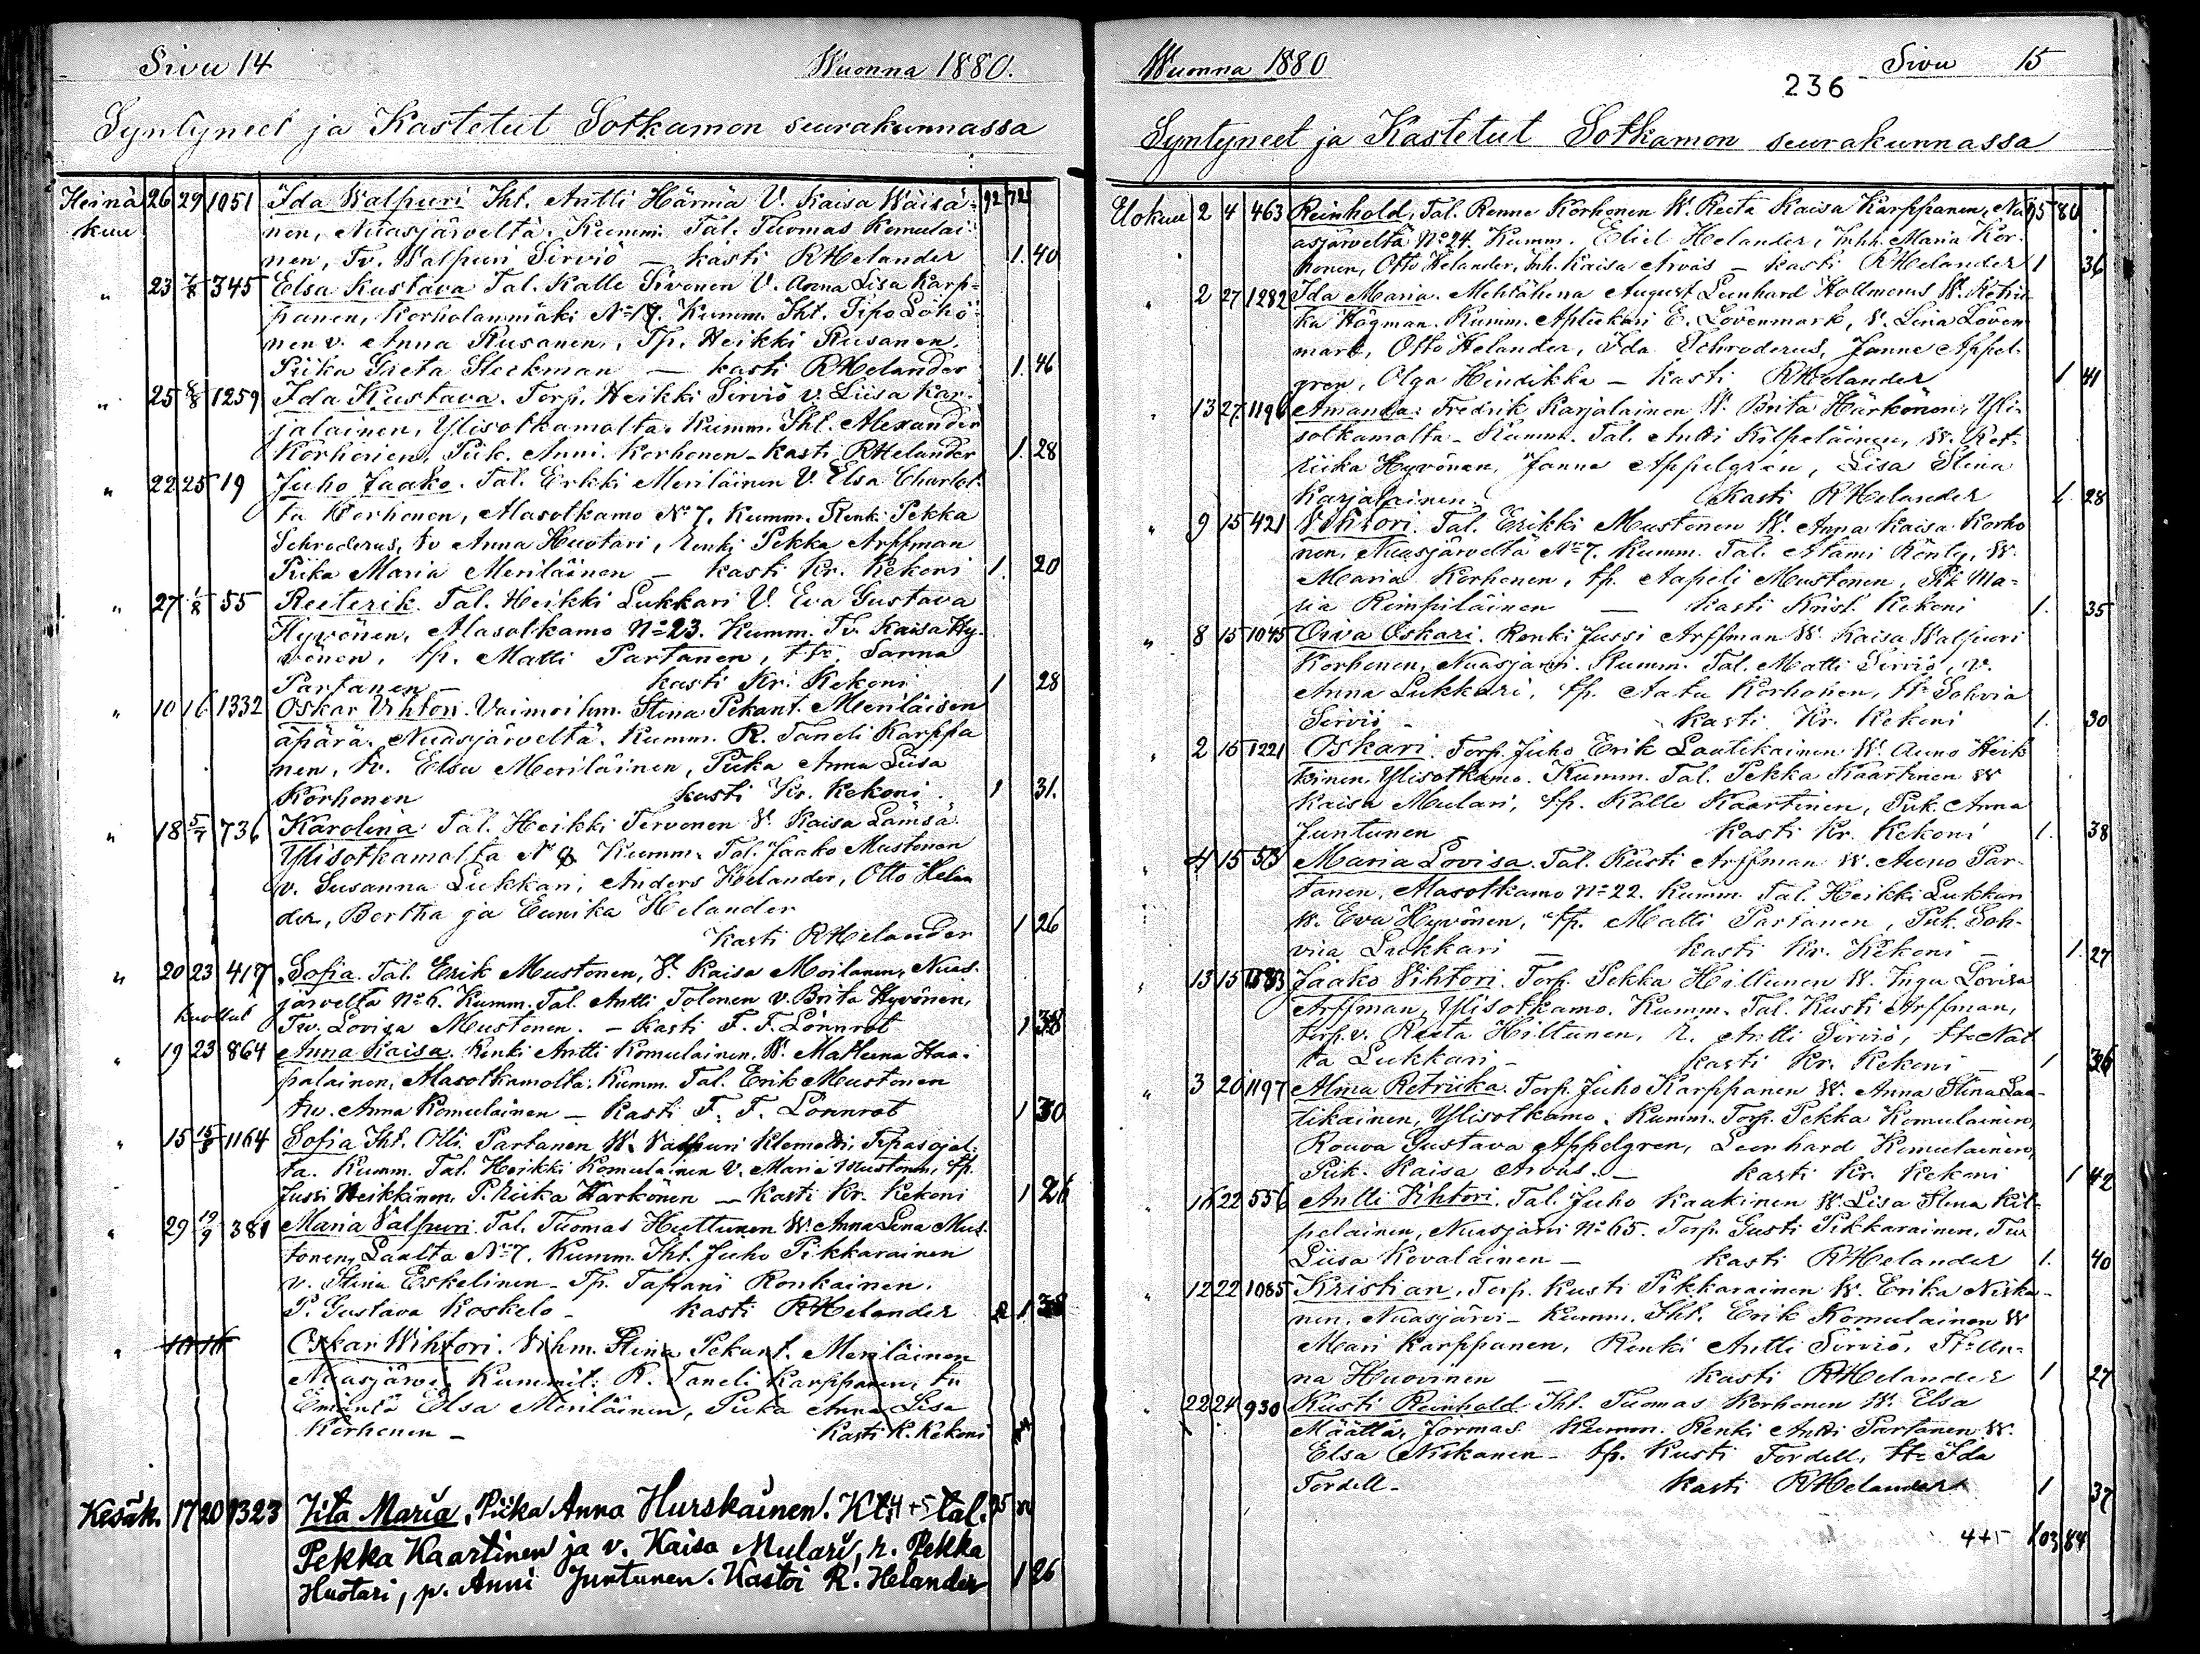 Sivu 14 Wuonna 1880.
Syntyneet ja Kastetut Sotkamon seurakunnassa
Heinä 26 29 1051 Ida Walpuri Iht. Antti Härmä V. Kaisa Wäisä- 92 72
kuu nen, Nuasjärveltä. Kumm. Tal. Tuomas Komulai-
nen, Tv. Walpuri Sirviö — kasti RHelander 1. 40
" 23 7/8 345 Elsa Kustava Tal. Kalle Sivonen V. Anna Lisa Karp-
panen, Korholanmäki No 17. Kumm. Iht. Pipo Löhö-
nen v. Anna Rusanen, Tp. Heikki Rusanen.
Piika Greta Steckman — kasti RHelander 1. 46
" 25 8/8 1259 Ida Kustava. Torp. Heikki Sirviö v. Liisa Kar-
jalainen, Ylisotkamolta. Kumm. Iht. Alexander
Korhonen, Piik. Anni Korhonen - kasti RHelander 1. 28
" 22 25 19 Juho Jaako. Tal. Erkki Meriläinen V. Elsa Charlot-
ta Korhonen, Alasotkamo No 7. Kumm. Renki Pekka
Schroderus, tv Anna Huotari, renki Pekka Arffman
Piika Maria Meriläinen — kasti Kr. Kekoni 1. 20
" 27 1/8 55 Reeterik. Tal. Heikki Lukkari V. Eva Gustava
Hyvönen, Alasotkamo No 23. Kumm. Tv. Kaisa Hy-
vönen, tp. Matti Partanen, ttr. Sanna
Partanen kasti Kr. Kekoni 1 28
" 10 16 1332 Oskar Vihtori. Vaimoihm. Stina Pekant. Meriläisen
äpärä. Nuasjärveltä. Kumm. R. Taneli Karppa
nen, tv. Elsa Meriläinen, Piika Anna Liisa
Korhonen kasti Kr. Kekoni 1 31.
" 18 5/7 736 Karolina Tal. Heikki Tervonen V. Kaisa Lämsä
Ylisotkamolta No 8 Kumm. Tal. Jaako Mustonen
v. Susanna Lukkari, Anders Helander, Otto Helan
der, Bertha ja Eunika Helander
kasti RHelander 1 26
" 20 23 417 Sofia Tal. Erik Mustonen, V. Kaisa Moilanen, Nuas-
järveltä No 6. Kumm. Tal. Antti Tolonen v. Brita Hyvönen,
kuollut Tv. Lovisa Mustonen. — kasti F. F. Lönnrot 1 38
" 19 23 864 Anna Kaisa. Renki Antti Komulainen. W. Matleena Haa-
palainen, Alasotkamolta. Kumm. Tal. Erik Mustonen
tv. Anna Komulainen — kasti F. F. Lönnrot 1 30
" 15 1164 Sofia Iht. Olli Partanen W. Valpuri Klemetti, Tipasojal-
ta. Kumm. Tal. Heikki Komulainen V. Maria Mustonen, tp.
Jussi Heikkinen P. Riika Karkönen — kasti Kr. Kekoni 1 26
" 29 19/9 381 Maria Valpuri Tal. Tuomas Huttunen W. Anna Lena Mus-
tonen, Laatta No 7. Kumm. Iht. Juho Pikkarainen
v. Stina Eskelinen - Tp. Tapani Ronkainen.
P. Gustava Koskelo - kasti RHelander 1 38
" 10 16 Oskar Wihtori. V.ihm. Stina Pekant. Meriläinen
Nuasjärvi Kummit: R. Taneli Karppanen, tv
Emäntä Elsa Meriläinen, Piika Anna Lisa
Korhonen - kasti K. Kekoni
Kesäk. 17 20 1323 Iita Maria. Piika Anna Hurskainen. Kt: 4+5 tal.
Pekka Kaartinen ja v. Kaisa Mulari, r. Pekka
Huotari, p. Anni Juntunen. Kastoi R. Helander 1 26
Wuonna 1880 Sivu 15
236
Syntyneet ja Kastetut Sotkamon seurakunnassa
Elokuu 2 4 463 Reinhold, Tal. Renne Korhonen W. Reeta Kaisa Karppanen, Nu 95 80
asjärveltä No 24. Kumm. Eliel Helander, Inhh. Maria Kor-
honen, Otto Helander, Inh. Kaisa Arväs — kasti RHelander 1 36
" 2 27 1282 Ida Maria. Mehtähena August Leenhard Hollmerus W. Retrii-
ka Högman. Kumm. Aptekari E. Lövenmark, V. Lina Löven
mark, Otto Helander, Ida Schroderus, Janne Appel-
gren, Olga Hindikka — kasti RHelander 1 41
" 13 27 1196 Amanda: Fredrik Karjalainen W. Brita Härkönen, Yli-
sotkamolta - Kumm. Tal. Antti Kilpeläinen, W. Ret-
riika Hyvönen, Janne Appelgrén, Lisa Stina
Karjalainen. kasti RHelander 1 28
" 9 15 421 Vihtori. Tal. Erikki Mustonen W. Anna Kaisa Korho
nen, Nuasjärveltä No 7. Kumm. Tal. Atami Rönty, W.
Maria Korhonen, tp. Aapeli Mustonen, Pk Ma-
ria Reinpiläinen — kasti Krist. Kekoni 1. 35
" 8 15 1045 Oiva Oskari. Renki Jussi Arffman W. Kaisa Walpuri
Korhonen, Nuasjärvi. Kumm. Tal. Matti Sirviö, v.
Anna Lukkari, tp. Aatu Korhonen, ttr Sohvia
Sirviö - kasti Kr. Kekoni 1. 30
" 2 15 1221 Oskari. Torp. Juho Erik Laatikainen W. Auno Heik
kinen, Ylisotkamo. Kumm. Tal. Pekka Kaartinen W
Kaisa Mulari, tp. Kalle Kaartinen, Piik. Anna
Juntunen kasti Kr. Kekoni 1. 38
" 4 15 53 Maria Lovisa. Tal. Kusti Arffman W. Auno Par-
tanen, Alasotkamo No 22. Kumm. Tal. Heikki Lukkari
W. Eva Hyvönen, tp. Matti Partanen, Piik. Soh-
viia Lukkari — kasti Kr. Kekoni — 1. 27
" 13 15 Jaako Vihtori. Torp. Pekka Hiltunen W. Inga Lovisa
Arffman, Ylisotkamo. Kumm. Tal. Kusti Arffman,
torp.v. Reeta Hiltunen, r. Antti Sirviö, ttr Nat
ta Lukkari - kasti Kr. Kekoni — 1 36
" 3 20 1197 Alma Retriika. Torp. Juho Karppanen W. Anna Stina Laa-
tikainen, Ylisotkamo. Kumm. Torp. Pekka Komulainen,
Rouva Gustava Appelgren, Leonhard Komulainen,
Piik. Kaisa Arväs. — kasti Kr. Kekoni 1 42
" 16 22 556 Antti Vihtori. Tal. Juho Kaakinen W. Lisa Stina Kil-
pelainen, Nuasjärvi No 65. Torp. Gusti Pikkarainen, Tv.
Liisa Kovalainen — kasti RHelander 1. 40
" 12 22 1085 Kristian, Torp. Kusti Pikkarainen W. Erika Niska-
nen, Nuasjärvi - Kumm. Iht. Erik Komulainen W
Mari Karppanen, Renki Antti Sirviö, Ttr An-
na Huovinen — kasti RHelander 1 27
" 22 24 930 Kusti Reinhold Iht. Tuomas Korhonen W. Elsa
Määttä, Jormas Kumm. Renki Antti Partanen W.
Elsa Niskanen - tp. Kusti Tordell, ttr Ida
Tordell - kasti RHelander 1 37
4+5 103 84